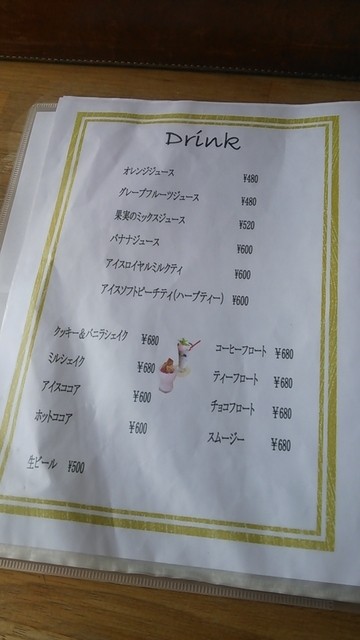 Drink
オレンジジュース ¥480
グレープフルーツジュース ¥480
果実のミックスジュース ¥520
バナナジュース ¥600
アイスロイヤルミルクティ ¥600
アイスソフトピーチティ(ハーブティー) ¥600
クッキー&バニラシェイク ¥680
ミルシェイク ¥680
アイスココア ¥600
ホットココア ¥600
コーヒーフロート ¥680
ティーフロート ¥680
チョコフロート ¥680
スムージー ¥680
生ビール ¥500